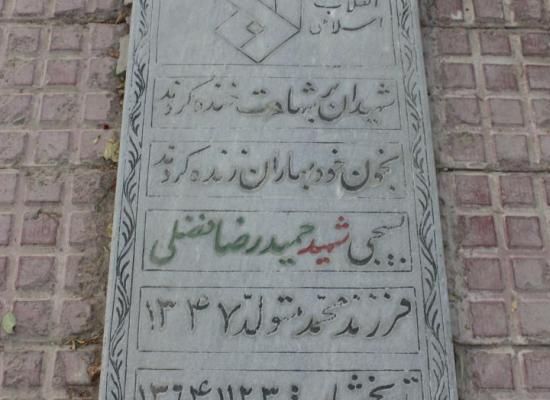 انقلاب
اسلامی
شهیدان بر شهادت خنده کردند
بخون خود بهاران زنده کردند
بسیجی شهید حمیدرضا فضلی
فرزند محمد متولد ۱۳۴۷
تاریخ شهادت: ۱۳۶۴/۱۱/۲۳